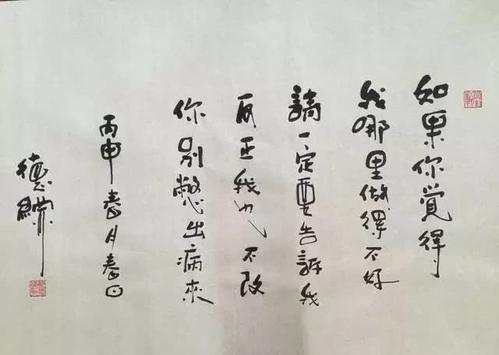 如果你覺得
我哪里做得不好
請一定要告訴我
反正我也不改
你別憋出病來
丙申春月春日
德